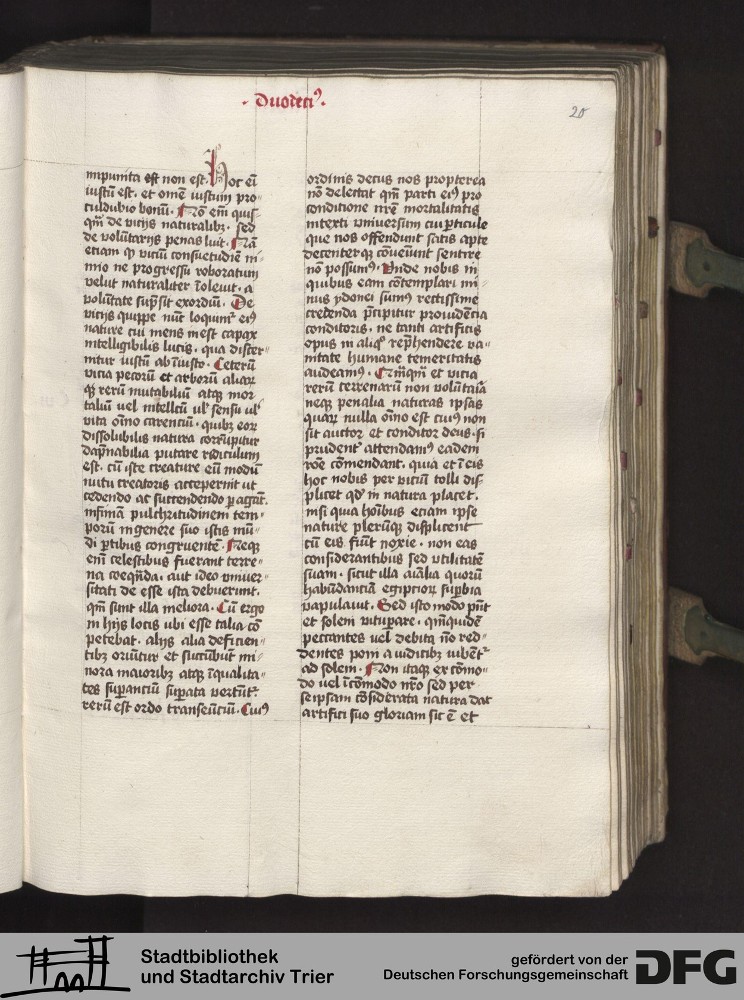 · Duodeciꝰ ·
20
impunita est non est. Hoc eī
iustū est. et omē iustum pro⸗
culdubio bonū. Nō em̄ quis⸗
qm̄ de vicijs naturalibꝫ. sed
de volūtarijs penas luit. Nā
etiam qd̓ viciū consuetudīe ni⸗
mio ne progressu roboratum
velut naturaliter īoleuit. a
volūtate sūpsit exordiū. De
vicijs quippe nūc loquimr̄ eiꝰ
nature cui mens inest capax
intelligibilis lucis. qua discer⸗
nitur iustū ab īiusto. Ceterū
vicia pecorū et arborū aliarꝝ
qꝫ rerū mutabiliū atqꝫ mor
taliū vel intellcū ul̓ sensu ul̓
vita oīno carenciū. quibꝫ eorꝝ
dissolubilis natura corrūpitur
dāpnabilia putare ridiculum
est. cū iste creature eū modū
nutu creatoris acceperint ut
cedendo ac succendendo ꝑagāt.
infimā pulchritudinem tem⸗
porū in genere suo istis mū⸗
di ꝑtibus congruentē. Neqꝫ
em̄ celestibus fuerant terre⸗
na coeqn̄da. aut ideo vniuer⸗
sitati de esse ista debuerunt.
qm̄ sunt illa meliora. Cū ergo
in hijs locis ubi esse talia cō
petebat. alijs alia deficien⸗
tibꝫ oriūtur et succūbūt mi⸗
nora maioribꝫ atqꝫ īqualita⸗
tes suꝑanciū suꝑata vertūtr̄.
rerū est ordo transeūciū. Cuiꝰ
ordinis decus nos propterea
nō delectat qm̄ parti eiꝰ pro
conditione nr̄e mortalitatis
intexti vniuersum cui ꝑticule
que nos offendunt satis apte
decenterqꝫ cōueniunt sentire
nō possumꝰ. Vnde nobis in
quibus eam cōtemplari mi⸗
nus ydonei sumꝰ rectissime
credenda p̄cipitur prouidēcia
conditoris. ne tanti artificis
opus in aliqͦ rep̄hendere va⸗
nitate humane temeritatis
audeamꝰ. Qm̄qm̄ et vicia
rerū terrenarū non volūtaīa
neqꝫ penalia naturas ipsas
quarꝝ nulla oīno est cuiꝰ non
sit auctor et conditor deus. si
prudentr̄ attendamꝰ eadem
rōe cōmendant. quia et ī eis
hoc nobis per viciū tolli dis⸗
plicet qd̓ in natura placet.
nisi quia hoībus etiam ipse
nature plerūqꝫ displicent
cū eis fiūt noxie. non eas
considerantibus sed vtilitatē
suam. sicut illa aīalia quorū
habūdanciā egiptiorꝝ suꝑbia
vapulauit. Sed isto modo pn̄t
et solem vituꝑare. qm̄quidē
peccantes vel debita nō red⸗
dentes poni a iudicibꝫ iubētr̄
ad solem. Non itaqꝫ ex cōmo⸗
do vel īcōmodo nr̄o sed per
seipsam cōsiderata natura dat
artifici suo gloriam sic ē et
Stadtbibliothek
und Stadtarchiv Trier
gefördert von der
Deutschen Forschungsgemeinschaft
DFG